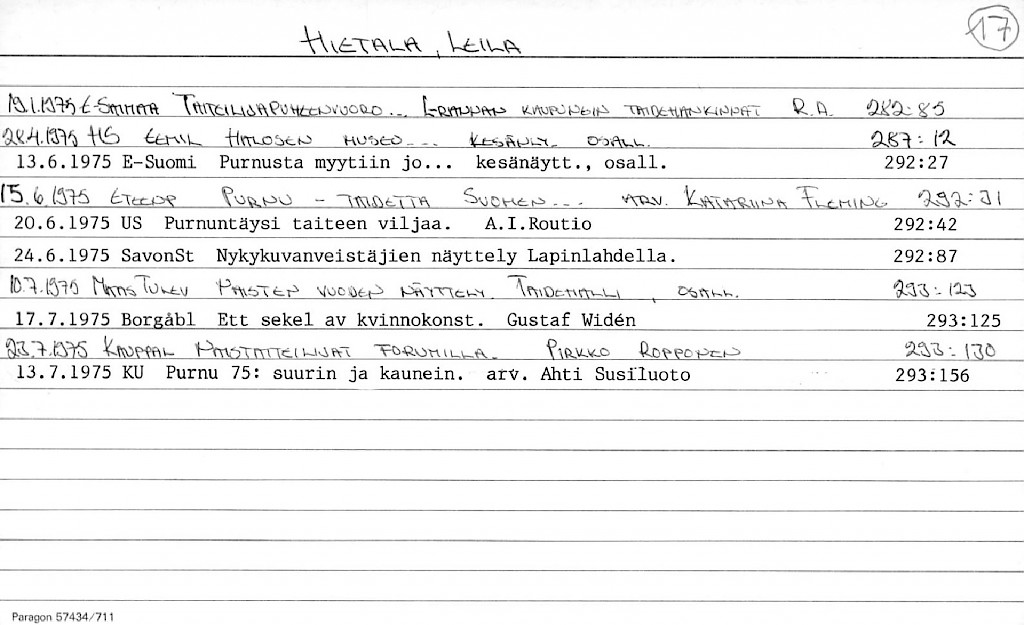 HIETALA, LEILA
17
19.1.1975 E-SAIMAA TAITEILIJAPUHEENVUORO... L-RANNAN KAUPUNGIN TAIDEHANKINNAT R.A. 282:85
28.4.1975 HS EEMIL HALOSEN MUSEO... KESÄNÄY. OSALL. 287:12
13.6.1975 E-Suomi Purnusta myytiin jo... kesänäytt., osall. 292:27
15.6.1975 ETEENP PURNU - TAIDETTA SUOMEN... ARV. KATARIINA FLEMING 292:31
20.6.1975 US Purnuntäysi taiteen viljaa. A.I.Routio 292:42
24.6.1975 SavonSt Nykykuvanveistäjien näyttely Lapinlahdella. 292:87
10.7.1975 MAASTULEV NAISTEN VUODEN NÄYTTELY. TAIDEHALLI, OSALL. 293:123
17.7.1975 Borgåbl Ett sekel av kvinnokonst. Gustaf Widén 293:125
23.7.1975 KAUPPAL NAISTAITEILIJAT FORUMILLA. PIRKKO ROPPONEN 293:130
13.7.1975 KU Purnu 75: suurin ja kaunein. arv. Ahti Susiluoto 293:156
Paragon 57434/711